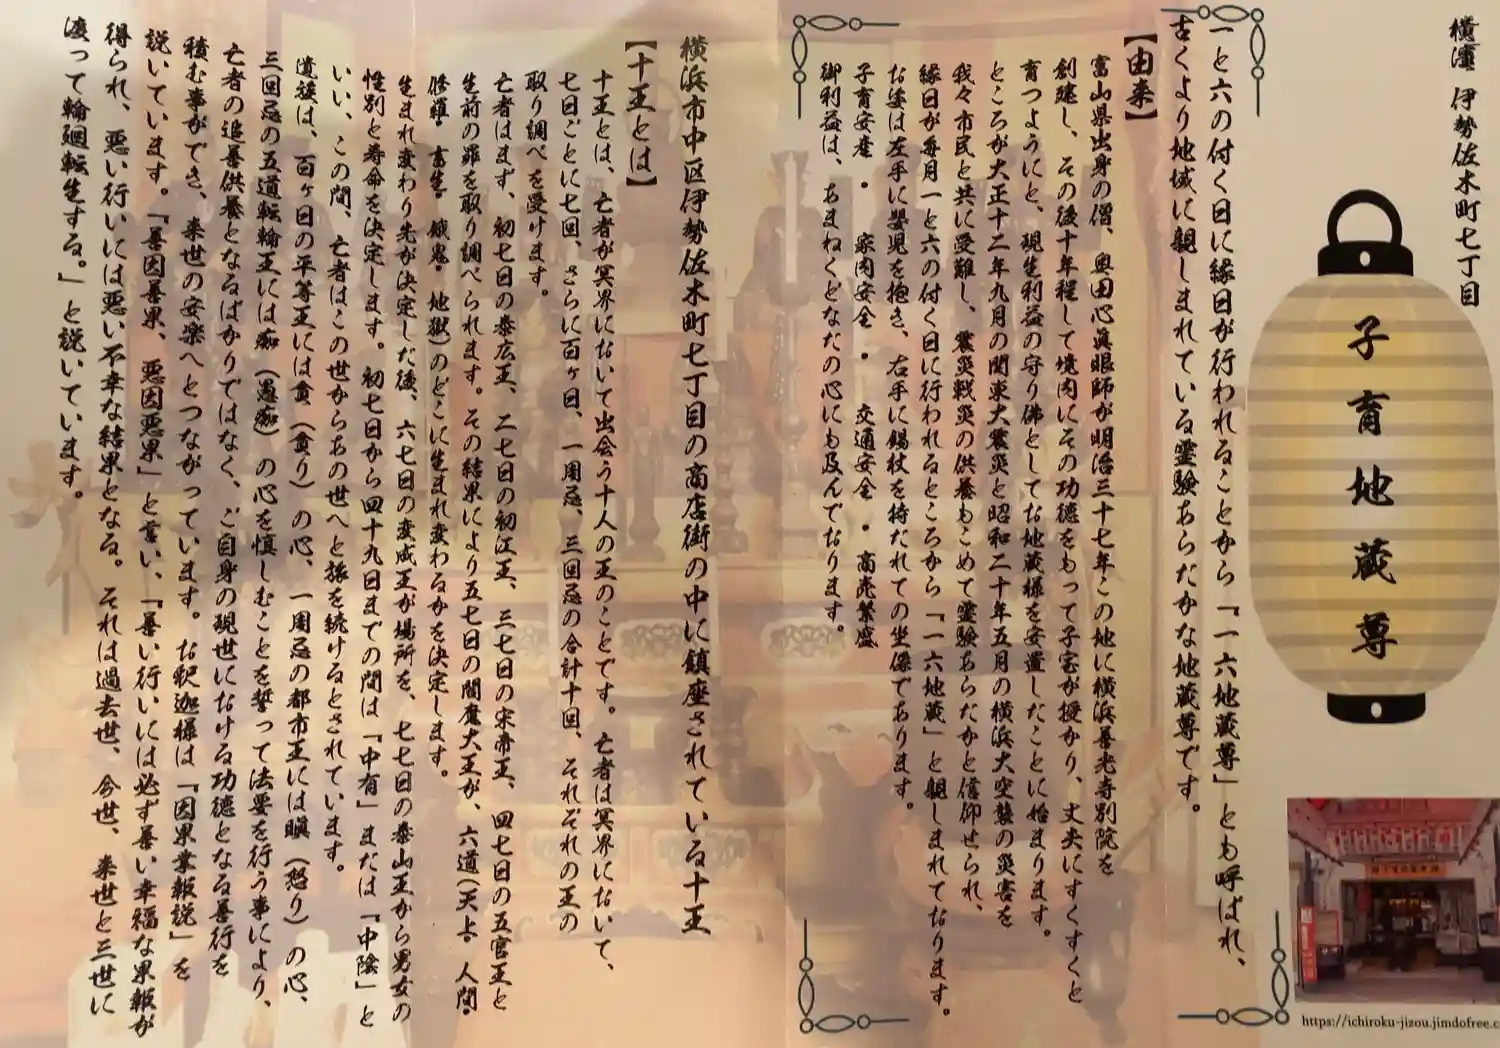 横濱 伊勢佐木町七丁目
子育地蔵尊
https://ichiroku-jizou.jimdofree.c
一と六の付く日に縁日が行われることから『一六地蔵尊』とも呼ばれ、
古くより地域に親しまれている霊験あらたかな地蔵尊です。
【由来】
富山県出身の僧、奥田心眞眼師が明治三十七年この地に横浜善光寺別院を
創建し、その後十年程して境内にその功徳をもって子宝が授かり、丈夫にすくすくと
育つようにと、現生利益の守り佛としてお地蔵様を安置したことに始まります。
ところが大正十二年九月の関東大震災と昭和二十年五月の横浜大空襲の災害を
我々市民と共に受難し、震災戦災の供養もこめて霊験あらたかと信仰せられ、
縁日が毎月一と六の付く日に行われるところから『一六地蔵』と親しまれております。
お姿は左手に嬰児を抱き、右手に錫杖を持たれての坐像であります。
子育安産・家内安全・交通安全・商売繁盛
御利益は、あまねくどなたの心にも及んでおります。
横浜市中区伊勢佐木町七丁目の商店街の中に鎮座されている十王
【十王とは】
十王とは、亡者が冥界において出会う十人の王のことです。亡者は冥界において、
七日ごとに七回、さらに百ヶ日、一周忌、三回忌の合計十回、それぞれの王の
取り調べを受けます。
亡者はまず、初七日の泰広王、二七日の初江王、三七日の宋帝王、四七日の五官王と
生前の罪を取り調べられます。その結果により五七日の閻魔大王が、六道(天上・人間・
修羅・畜生・餓鬼・地獄)のどこに生まれ変わるかを決定します。
生まれ変わり先が決定した後、六七日の変成王が場所を、七七日の泰山王から男女の
性別と寿命を決定します。初七日から四十九日までの間は『中有』または『中陰』と
いい、この間、亡者はこの世からあの世へと旅を続けるとされています。
遺族は、百ヶ日の平等王には貪(貪り)の心、一周忌の都市王には瞋(怒り)の心、
三回忌の五道転輪王には痴(愚痴)の心を慎しむことを誓って法要を行う事により、
亡者の追善供養となるばかりではなく、ご自身の現世における功徳となる善行を
積む事ができ、来世の安楽へとつながっています。お釈迦様は『因果業報説』を
説いています。『善因善果、悪因悪果』と言い、『善い行いには必ず善い幸福な果報が
得られ、悪い行いには悪い不幸な結果となる。それは過去世、今世、来世と三世に
渡って輪廻転生する。』と説いています。